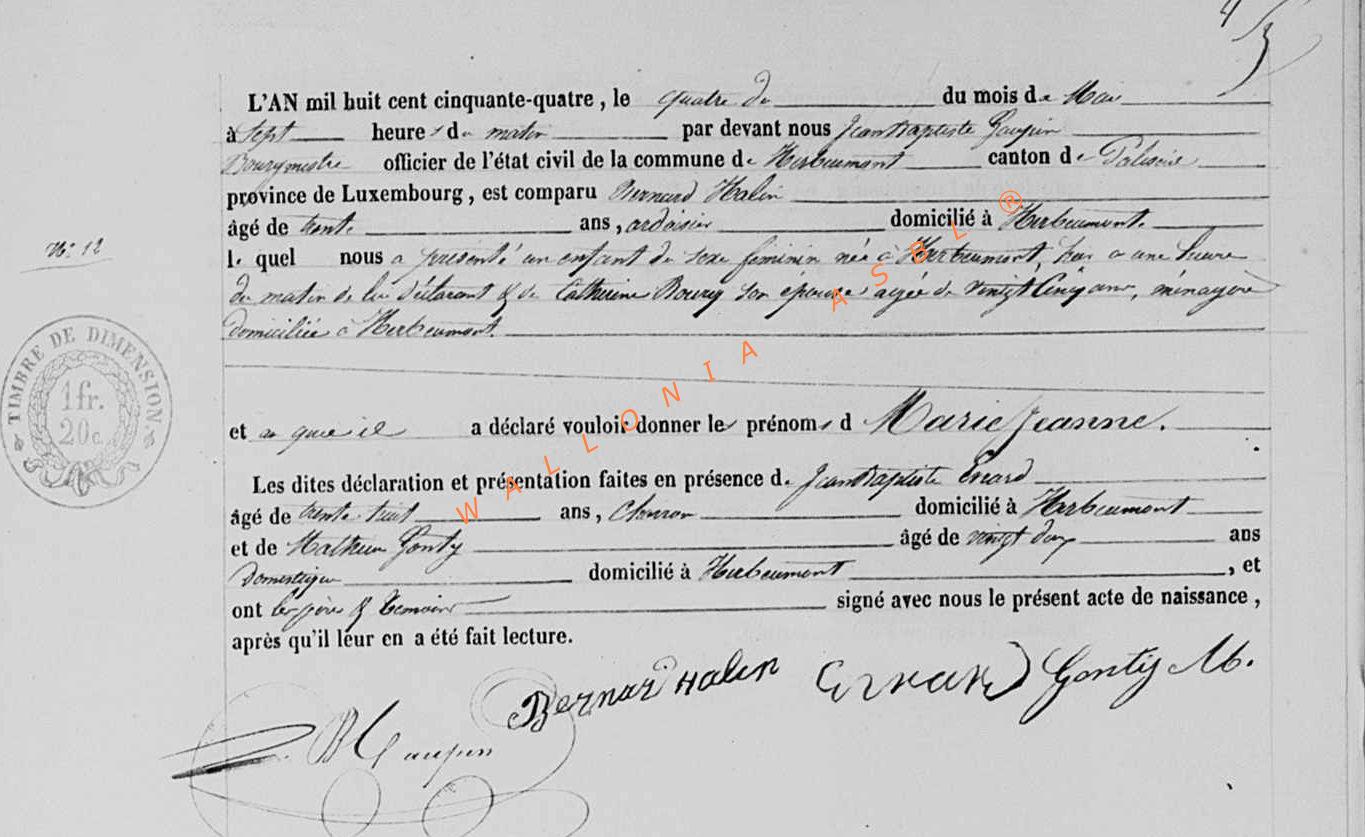 L'AN mil huit cent cinquante-quatre, le quatre du du mois de Mai
à Sept heures du matin par devant nous Jean Baptiste Gaupin
Bourgmestre officier de l'état civil de la commune de Herbeumont canton de Paliseul
province de Luxembourg, est comparu Bernard Halin
âgé de trente ans, ardoisier domicilié à Herbeumont
N° 12
le quel nous a présenté un enfant du sexe féminin née à Herbeumont, a une heure
du matin de lui déclarant & de Catherine Bourg son épouse agée de vingt Cinq ans, ménagère
domiciliée à Herbeumont.
TIMBRE DE DIMENSION.
1 fr.
20 c.
et a déclaré vouloir donner les prénoms d Marie Jeanne.
Les dites déclaration et présentation faites en présence de Jean Baptiste Evrard
âgé de trente huit ans, domicilié à Herbeumont
et de Mathieu Gonty âgé de vingt deux ans
Domestique domicilié à Herbeumont, et
ont les père & témoins signé avec nous le présent acte de naissance,
après qu'il leur en a été fait lecture.
Bernard Halin Evrard Gonty M.
JB Gaupin
WALLONIA ASBL ®